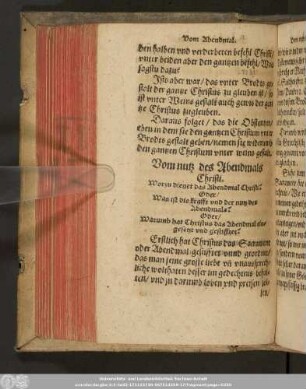 Vom Abendmal.
den halben vnd verderbeten befehl Christi
vnter beiden aber den gantzen befehl/ Was
sagstu dazu?
Ists aber war/ das vnter Brodts ge-
stalt der gantze Christus zu gleuben ist/ so
ist vnter Weins gestalt auch gewis der gan-
tze Christus zugleuben.
Daraus folget/ das die
eben in dem sie den gantzen Christum vnter
Brodts gestalt geben/ nemen sie widerumb
den gantzen Christum vnter weins gestalt.
Vom nutz des Abendmals
Christi.
Worzu dienet das Abendmal Christi?
Oder/
Was ist die krafft vnd der nutz des
Abendmals?
Oder/
Warumb hat Christus das Abendmal ein-
gesetzt vnd gestifftet?
Erstlich hat Christus das Sacrament
oder Abendmal gestifftet vnnd geordnet/
das man seine grosse liebe vñ vnaussprech-
liche wolthaten besser im gedechtnus behal-
te/ vnd jn darumb loben vnd preisen sol-